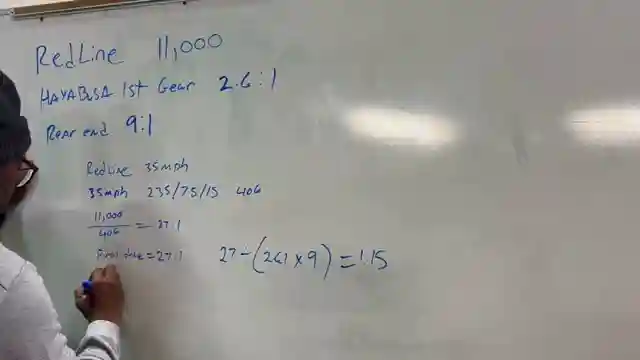 RedLine 11,000
HAYABUSA 1st Gear 2.6:1
Rear end 9:1
RedLine 35mph
35mph 235/75/15 406
11,000
406
= 27:1
= 27:1 27-(261×9)=1.15